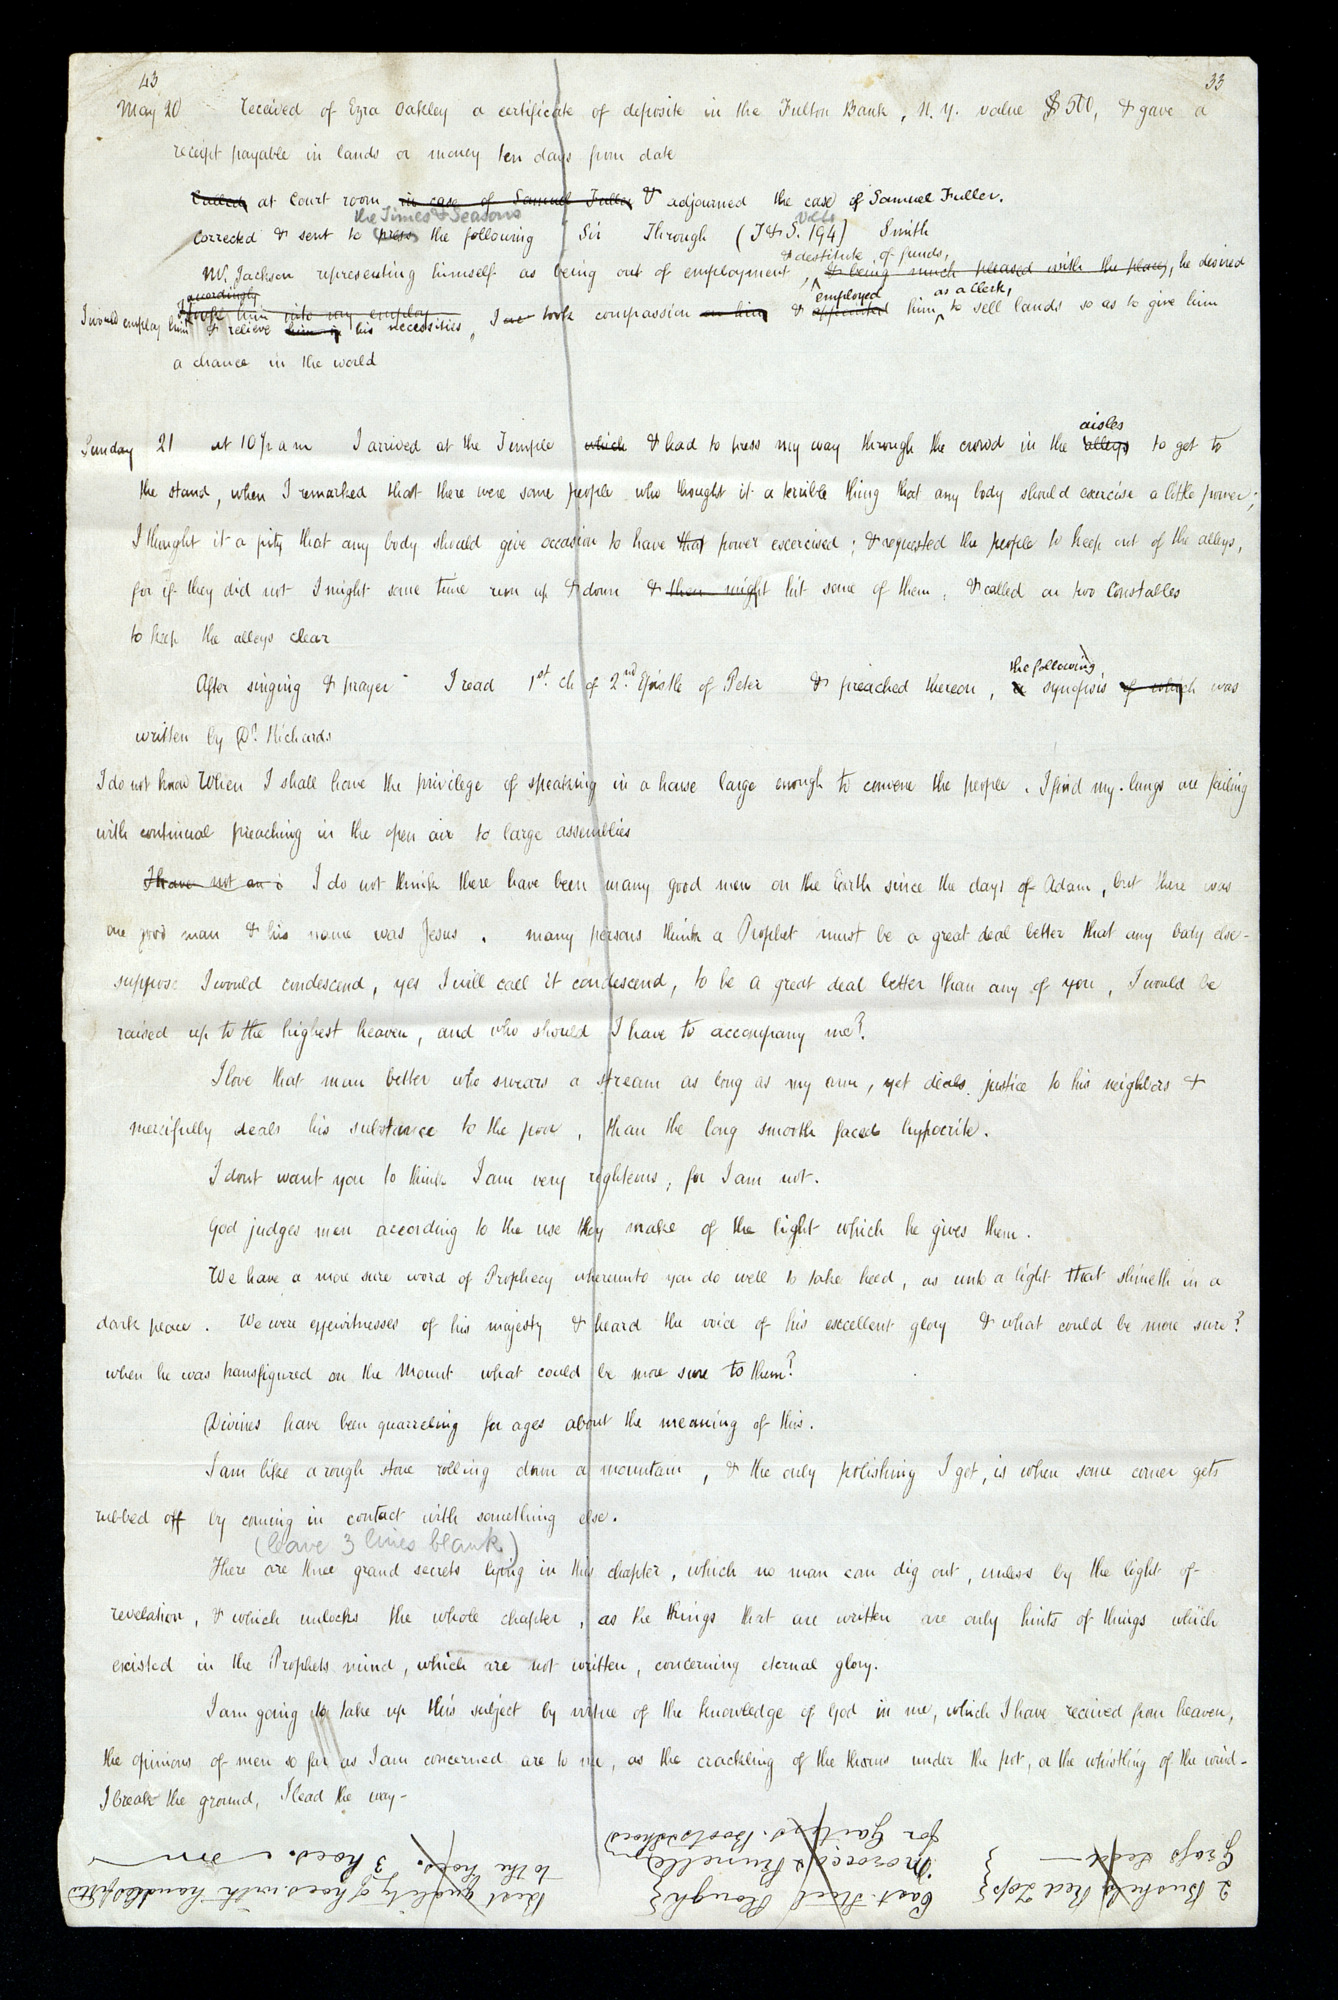 43
33
May 20 received of Ezra Oakley a certificate of deposite in the Fulton Bank, N.Y. value $500, & gave a
receipt payable in lands or money ten days from date
Called at Court room in case of Samuel Fuller & adjourned the case of Samuel Fuller.
the Times & Seasons
corrected & sent to press the following Sir Through (T & S. 194) Smith
& destitute of funds,
Mr. Jackson representing himself as being out of employment, & being much pleased with the place, he desired
accordingly
took him into my employ employed as a Clerk,
I would employ him & relieve him in his necessities, I took compassion on him & appointed him to sell lands so as to give him
a chance in the world
aisles
Sunday 21 at 10½ am I arrived at the Temple which & had to press my way through the crowd in the alleys to get to
the stand, when I remarked that there were some people who thought it a terrible thing that any body should exercise a little power;
I thought it a pity that any body should give occasion to have that power excercised; & requested the people to keep out of the alleys,
for if they did not I might some time run up & down & then might hit some of them; & called on two Constables
to keep the alleys clear
the following
After singing & prayer I read 1st. ch of 2nd Epistle of Peter & preached thereon, a synopsis of which was
written by Dr. Richards
I do not know When I shall have the privilege of speaking in a house large enough to convene the people. I find my lungs are failing
with continual preaching in the open air to large assemblies
I have not an i I do not think there have been many good men on the Earth since the days of Adam, but there was
one good man & his name was Jesus. many persons think a Prophet must be a great deal better that any body else-
suppose I would condescend, yes I will call it condescend, to be a great deal better than any of you, I would be
raised up to the highest heaven, and who should I have to accompany me?
I love that man better who swears a stream as long as my arm, yet deals justice to his neighbors &
mercifully deals his substance to the poor, than the long smooth faced hypocrite.
I dont want you to think I am very righteous, for I am not.
God judges men according to the use they make of the light which he gives them.
We have a more sure word of Prophecy whereunto you do well to take heed, as unto a light that shineth in a
dark place. We were eyewitnesses of his majesty & heard the voice of his excellent glory & what could be more sure?
when he was transfigured on the Mount what could be more sure to them?
Divines have been quarreling for ages about the meaning of this.
I am like a rough stone rolling down a mountain, & the only polishing I get, is when some corner gets
rubbed off by coming in contact with something else.
(leave 3 lines blank)
There are three grand secrets lying in this chapter, which no man can dig out, unless by the light of
revelation, & which unlocks the whole chapter, as the things that are written are only hints of things which
existed in the Prophets mind, which are not written, concerning eternal glory.
I am going to take up this subject by virtue of the knowledge of God in me, which I have received from heaven,
the opinions of men so far as I am concerned are to me, as the crackling of the thorns under the pot, or the whistling of the wind-
I break the ground, I lead the way-
2 Bushels Red Top
Grass seed
Cast Steel Plough
Morocco & Prunella
for Gaiters. Boots & Shoes
Best quality of hoes with handles
to the hoes. 3 hoes.